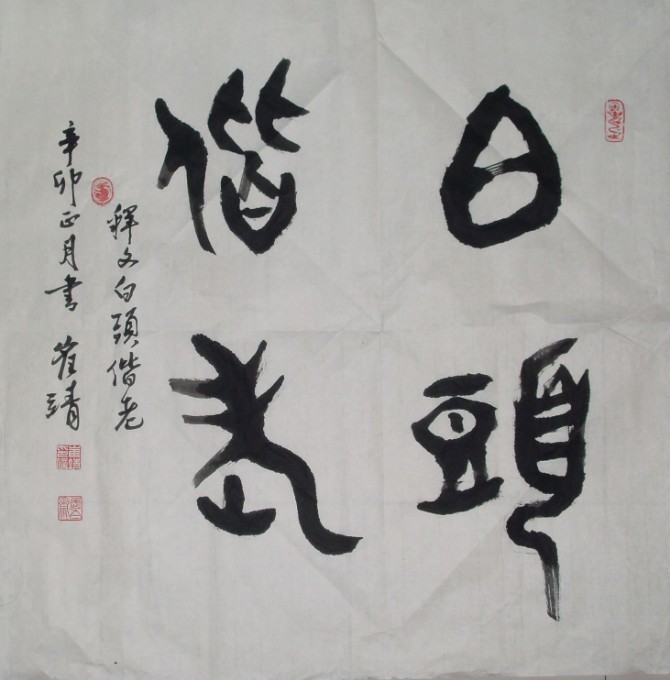 白頭
偕老
釋文白頭偕老
辛卯正月書崔靖